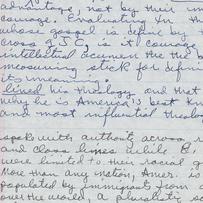 advantage, not by their
courage. Evaluating in th
whose gospel is define by t
cross of J.C., is it courage
intellectual acumen the the b
measuring stick for def
its meaning.
lined his theology and that
why he is America's best kn
and most influential theolo
speaks with authority across r
and class lines while B.
were limited to their racial g
More than any nation, Amer. is
populated by immigrants from a
over the world, a pluralistic so